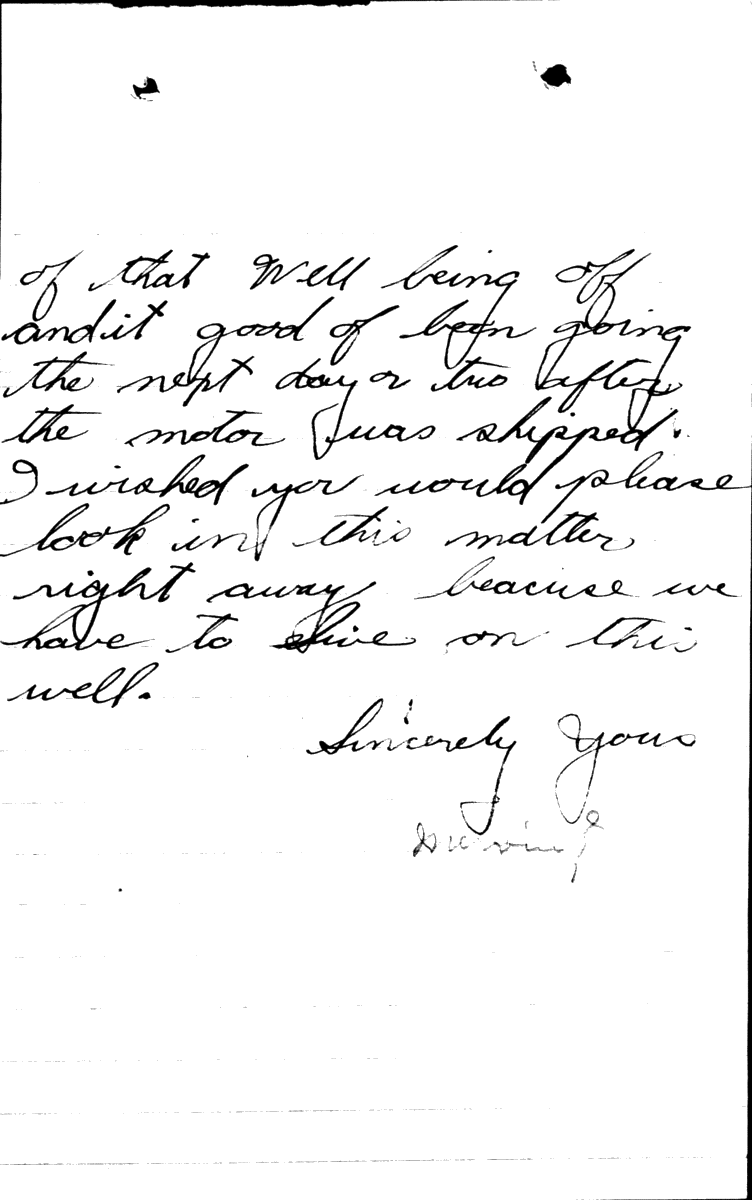 of that Well being off
and it good of been going
the next day or two after
the motor was shipped.
I wished you would please
look in this matter
right away beacuse we
have to live on this
well.
Sincerely Yours